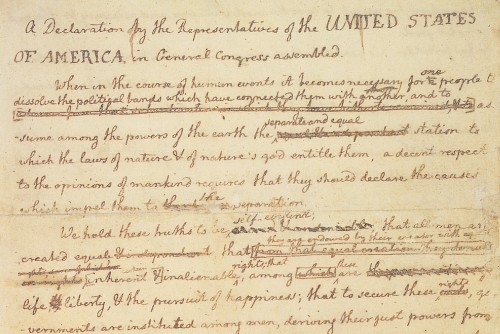 A Declaration by the Representatives of the UNITED STATES
OF AMERICA, in General Congress assembled.
When in the course of human events it becomes necessary for one people to
dissolve the political bands which have connected them with another, and to
as-
separate and equal
-sume among the powers of the earth the station to
which the laws of nature & of nature's god entitle them, a decent respect
to the opinions of mankind requires that they should declare the causes
which impel them to the separation.
self-evident;
We hold these truths to be that all men are
they are endowed by their creator with
created equal & independant, that from that equal creation they derive
rights; that these
inherent & inalienable, among which are
life & liberty, & the pursuit of happiness; that to secure these
rights
-vernments are instituted among men, deriving their just powers from